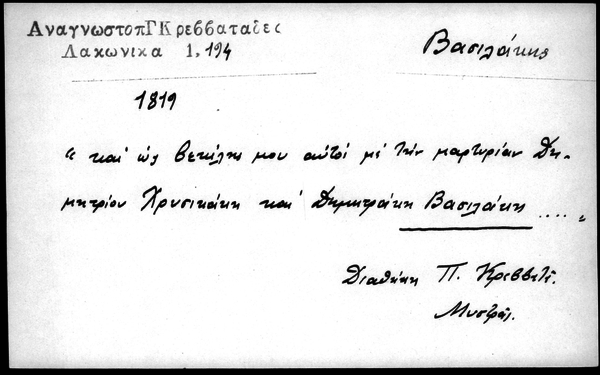 ΑναγνωστοπΓΚρεββαταδες
Λακωνικα 1,194
Βασιλάκης
1819
" καί ὡς βεκίλης μου αὐτοί μέ τήν μαρτυρίαν Δη-
μητρίου Χρυσικάκη καί Δημητράκη Βασιλάκη .... "
Διαθήκη Π. Κρεββατᾶ.
Μυστρᾶς.